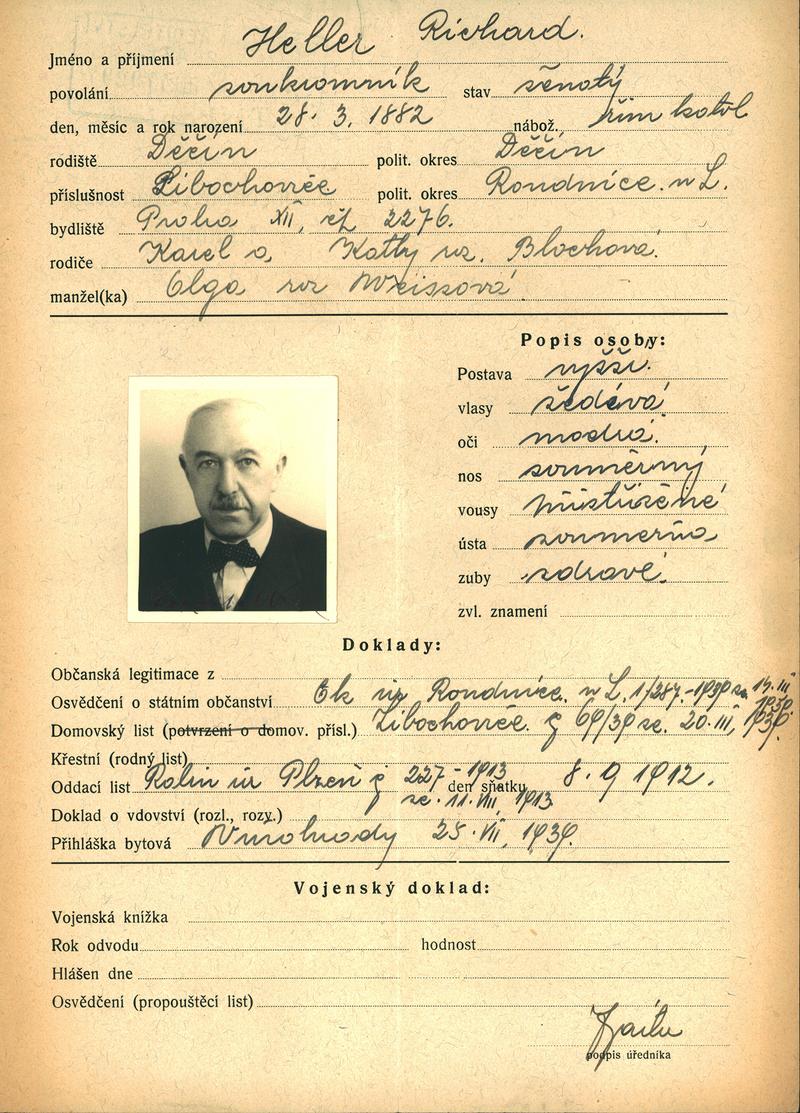 Jméno a příjmení Heller Richard.
povolání soukromník stav ženatý
den, měsíc a rok narození 28. 3. 1882 nábož. řím katol
rodiště Děčín polit. okres Děčín
příslušnost Libochovice polit. okres Roudnice. n L.
bydliště Praha XII, čp 2276.
rodiče Karel a Katty roz. Blochová.
manžel(ka) Olga roz Weissová
Popis osoby:
Postava vyšší.
vlasy šedivá
oči modrá.
nos souměrný
vousy přistřižené
ústa souměrná
zuby zdravé.
zvl. znamení
Doklady:
Občanská legitimace z
Osvědčení o státním občanství Ok úř Roudnice. n L. 1/287-1939 ze. 14. III 1939
Domovský list (potvrzení o domov. přísl.) Libochovice. č 69/39 ze. 20. III, 1939.
Křestní (rodný list)
Oddací list Rabín úr Plzeň č 227 - 1913 den sňatku 8. 9 1912.
ze. 11. VIII, 1913
Doklad o vdovství (rozl., rozy.)
Přihláška bytová Vinohrady 25. VII, 1939.
Vojenský doklad:
Vojenská knížka
Rok odvodu hodnost
Hlášen dne
Osvědčení (propouštěcí list)
podpis úředníka